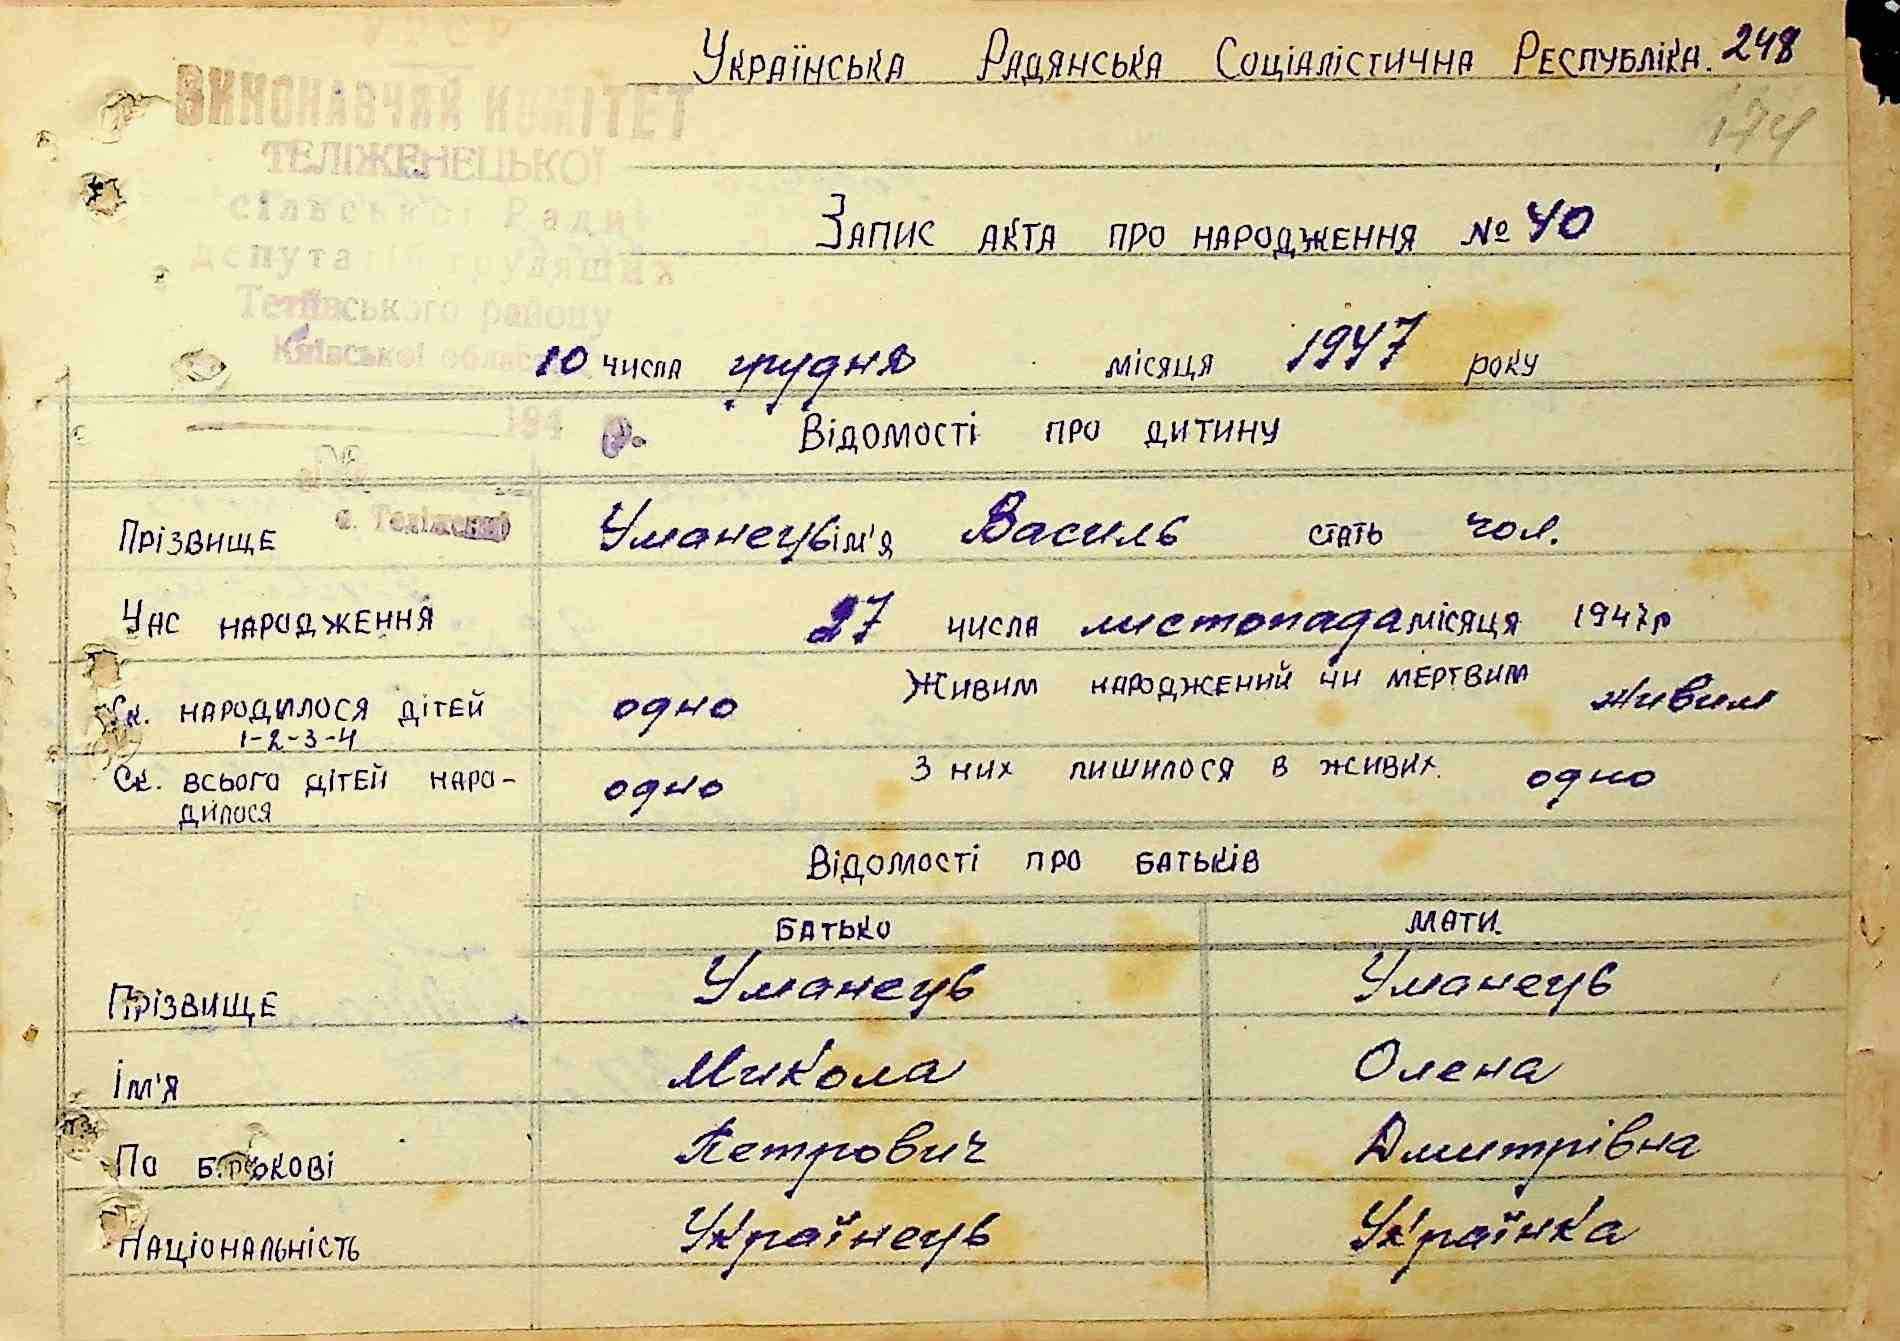 Українська Радянська Соціалістична Республіка. 248
174
ВИКОНАВЧИЙ КОМІТЕТ
ТЕЛІЖЕНЕЦЬКОЇ
сільської Ради
депутатів трудящих
Тетіївського району
Київської області
Запис акта про народження № 40
10 числа грудня місяця 1947 року
194 р.
Відомості про дитину
№
с. Теліженці
Прізвище Уманець ім'я Василь стать чол.
Час народження 27 числа листопада місяця 1947 р
Ск. народилося дітей 1-2-3-4 одно Живим народжений чи мертвим живим
Ск. всього дітей наро-
дилося одно З них лишилося в живих. одно
Відомості про батьків
батько мати.
Прізвище Уманець Уманець
Ім'я Микола Олена
По б.тькові Петрович Дмитрівна
Національність Українець Українка